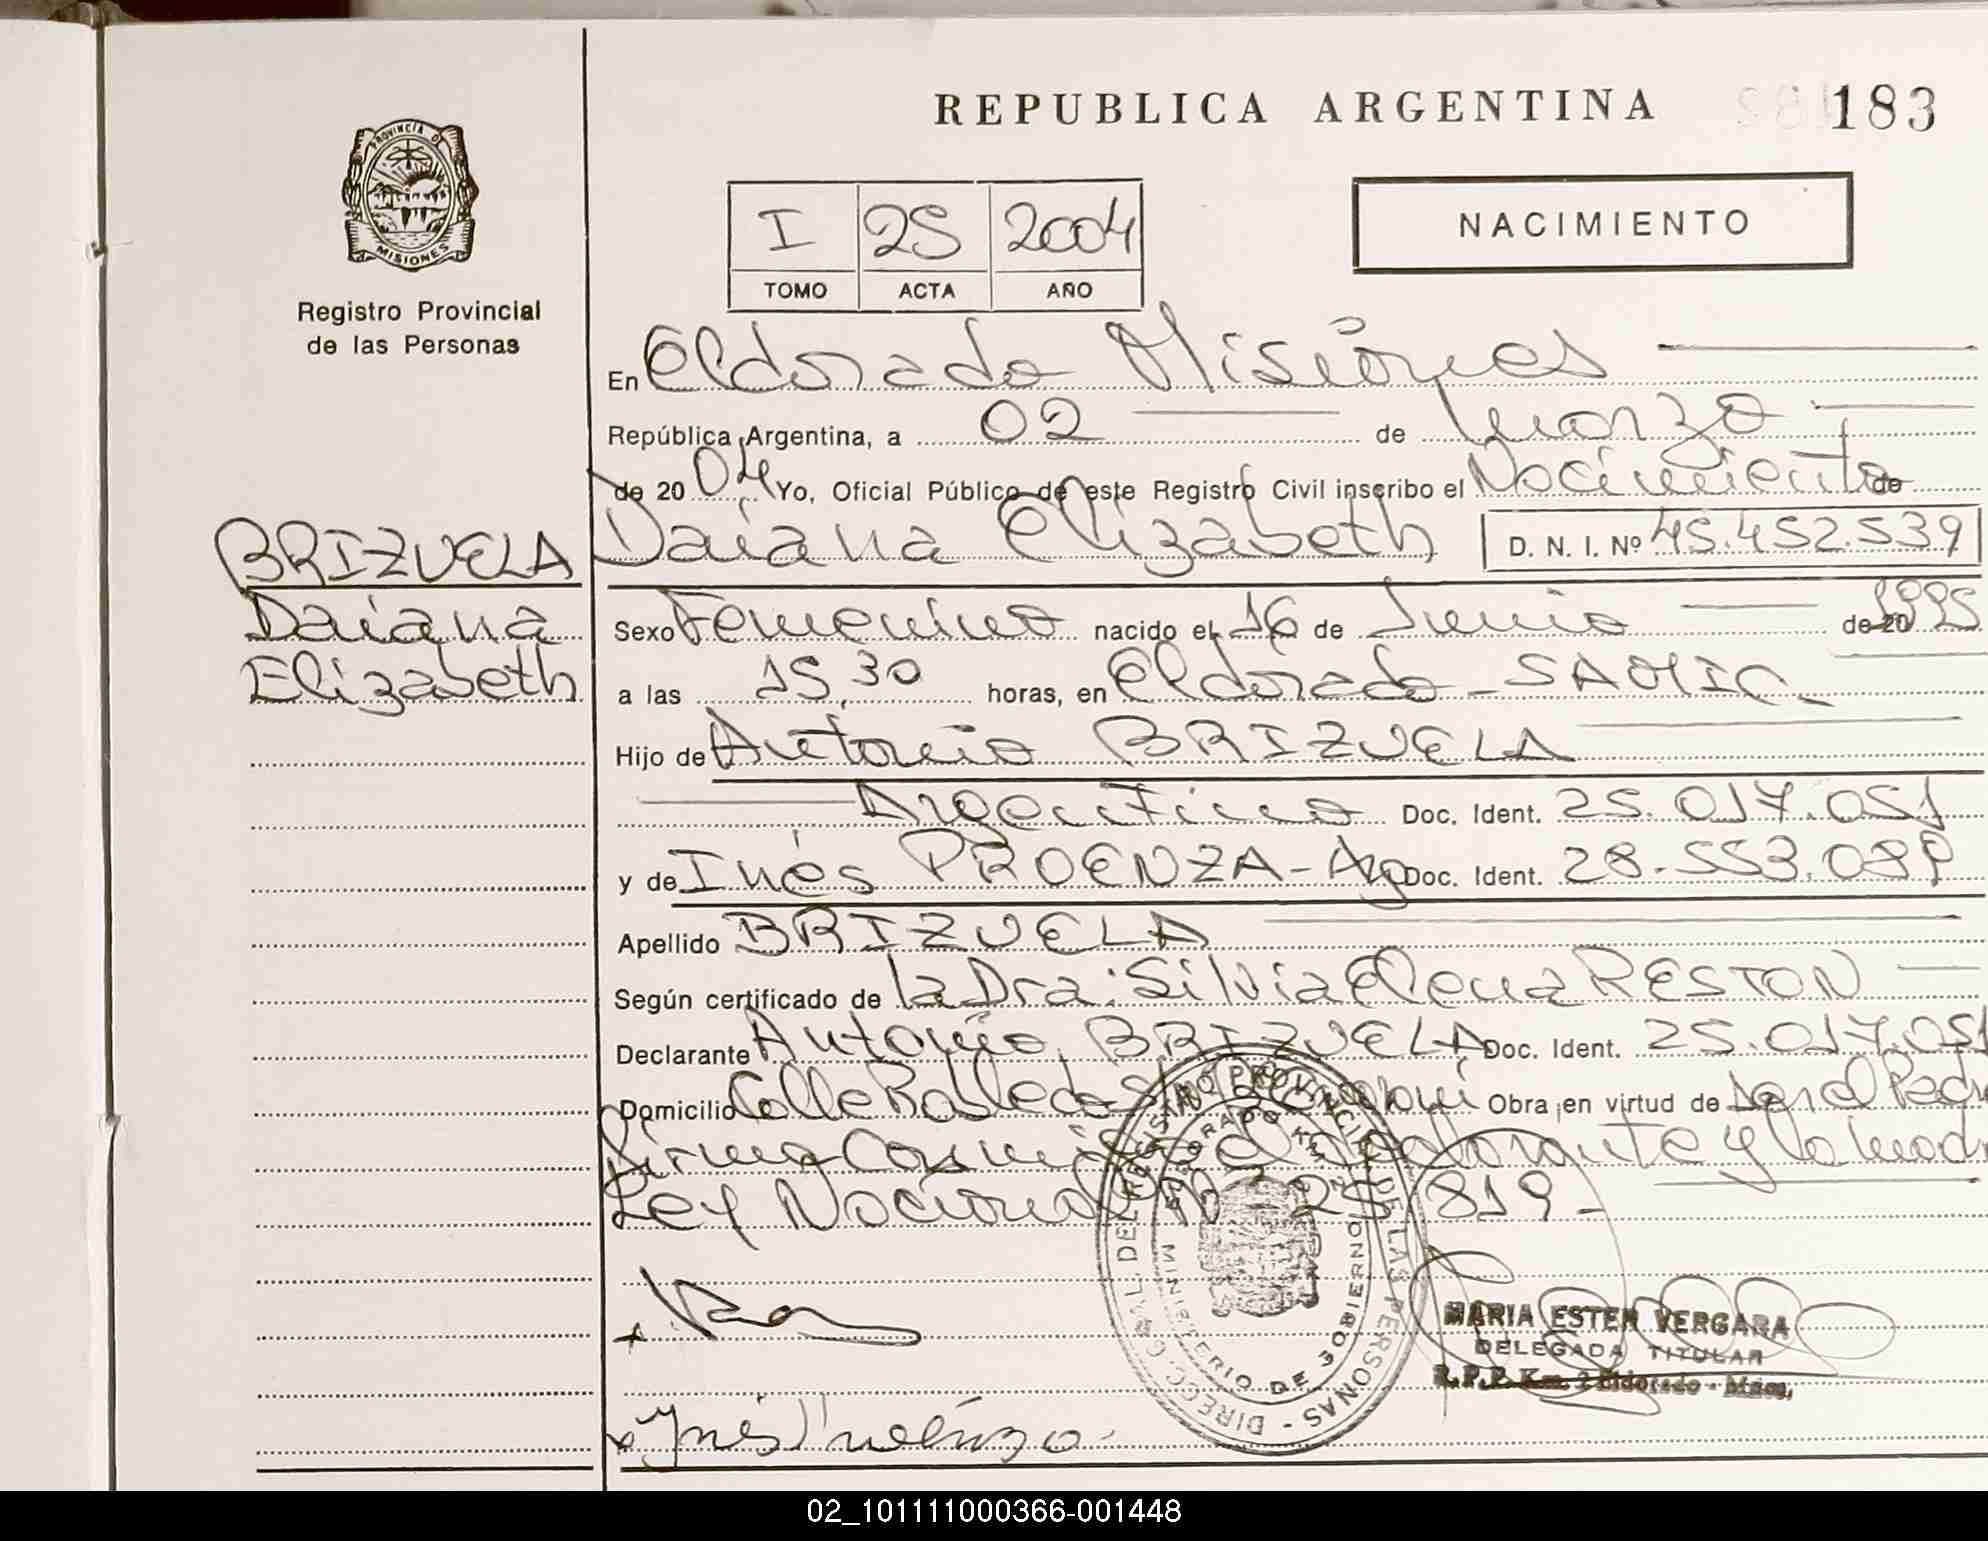 REPUBLICA ARGENTINA
183
PROVINCIA D
MISIONES
Registro Provincial
de las Personas
I 25 2004
TOMO ACTA AÑO
NACIMIENTO
En Eldorado Misiones
República Argentina, a 02 de Marzo
de 2004 Yo, Oficial Público de este Registro Civil inscribo el Nacimiento de
BRIZUELA
Daiana
Elizabeth
Daiana Elizabeth D. N. I. Nº 45.452.539
Sexo Femenino nacido el 16 de Junio de 20 1995
a las 15,30 horas, en Eldorado - SAMIC -
Hijo de Antonio BRIZUELA
Argentino Doc. Ident. 25.017.051
y de Inés PROENZA - Arg Doc. Ident. 28.553.089
Apellido BRIZUELA
Según certificado de la Dra: Silvia Elena RESTON
Declarante Antonio BRIZUELA Doc. Ident. 25.017.051
Domicilio Calle Obra en virtud de
Firma Conmigo el declarante y la
Ley Nacional Nº 25 819 -
DIRECC. GRAL. DEL REGISTRO PROVINCIAL DE LAS PERSONAS
MINISTERIO DE GOBIERNO
MARIA ESTER VERGARA
DELEGADA TITULAR
R.P.P. Km. 2 Eldorado - Mnes.
Inés
02_101111000366-001448